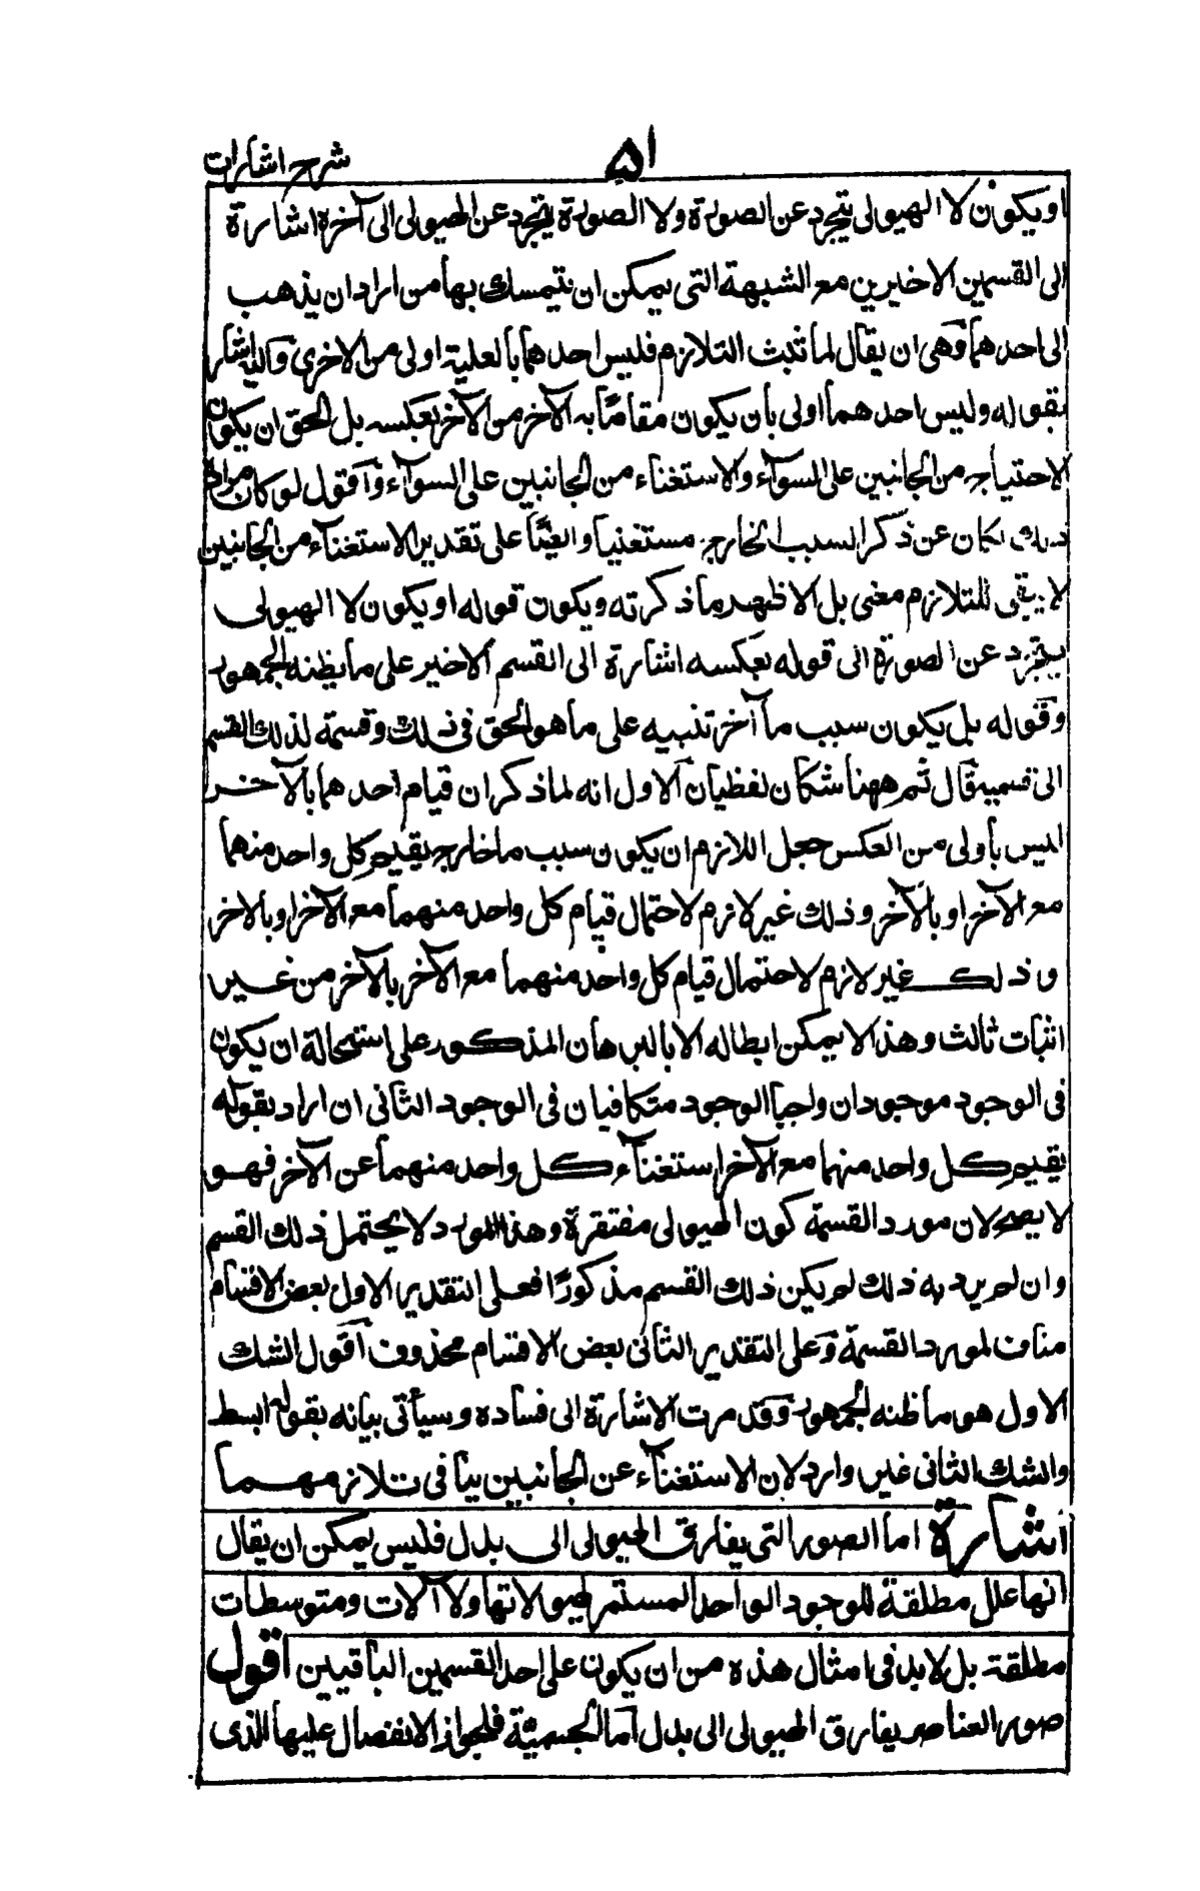 ۵۱
شرح اشارات
او يكون لا الهيولى يتجرد عن الصورة ولا الصورة يتجرد عن الهيولى الى آخره اشارة
الى القسمين الاخيرين مع الشبهة التى يمكن ان يتمسك بها من اراد ان يذهب
الى احدهما وهى ان يقال لما ثبت التلازم فليس احدهما بالعلية اولى من الاخرى واليه اشار
بقوله وليس احدهما اولى بان يكون مقاما به الآخر من الآخر بعكسه بل الحق ان يكون
الاحتياج من الجانبين على السوآء والاستغناء من الجانبين على السوآء وآقول لو كان مراده
ذلك لكان عن ذكر السبب الخارج مستغنيا وايضًا على تقدير الاستغنآء من الجانبين
لا يبقى للتلازم معنى بل الاظهر ما ذكرته ويكون قوله او يكون لا الهيولى
يتجرد عن الصورة الى قوله بعكسه اشارة الى القسم الاخير على ما يظنه الجمهور
وقوله بل يكون سبب ما آخر تنبيه على ما هو الحق فى ذلك وقسمة لذلك القسم
الى قسميه قال ثم ههنا شكان لفظيان الاول انه لما ذكر ان قيام احدهما بالآخر
ليس بأولى من العكس جعل اللازم ان يكون سبب ما خارج يقيم كل واحد منهما
مع الآخر او بالآخر وذلك غير لازم لاحتمال قيام كل واحد منهما مع الآخر او بالاخر
وذلك غير لازم لاحتمال قيام كل واحد منهما مع الآخر بالآخر من غير
اثبات ثالث وهذا لا يمكن ابطاله الا بالبرهان المذكور على استحالة ان يكون
فى الوجود موجودان واجبا الوجود متكافيان فى الوجود الثانى ان اراد بقوله
يقيم كل واحد منهما مع الآخر استغنآء كل واحد منهما عن الآخر فهو
لا يصح لان مورد القسمة كون الهيولى مفتقرة وهذا المورد لا يحتمل ذلك القسم
وان لم يرد به ذلك لم يكن ذلك القسم مذكورًا فعلى التقدير الاول بعض الاقسام
مناف لمورد القسمة وعلى التقدير الثانى بعض الاقسام محذوف آقول الشك
الاول هو ما ظنه الجمهور وقد مرت الاشارة الى فساده وسيأتى بيانه بقوله ابسط
والشك الثانى غير وارد لان الاستغنآء عن الجانبين ينافى تلازمهما
اشارة اما الصور التى يفارق الهيولى الى بدل فليس يمكن ان يقال
انها علل مطلقة للوجود الواحد المستمر لهيولاتها ولا آلات ومتوسطات
مطلقة بل لابد فى امثال هذه من ان يكون على احد القسمين الباقيين اقول
صور العناصر يفارق الهيولى الى بدل اما الجسمية فلجواز الانفصال عليها الذى